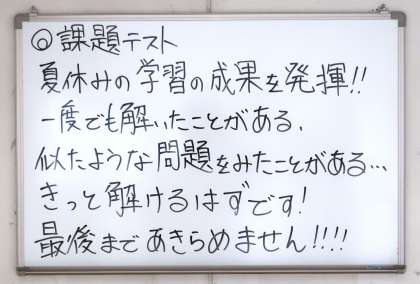 ◎課題テスト
夏休みの学習の成果を発揮!!
一度でも解いたことがある、
似たような問題をみたことがある…
きっと解けるはずです!
最後まであきらめません!!!!